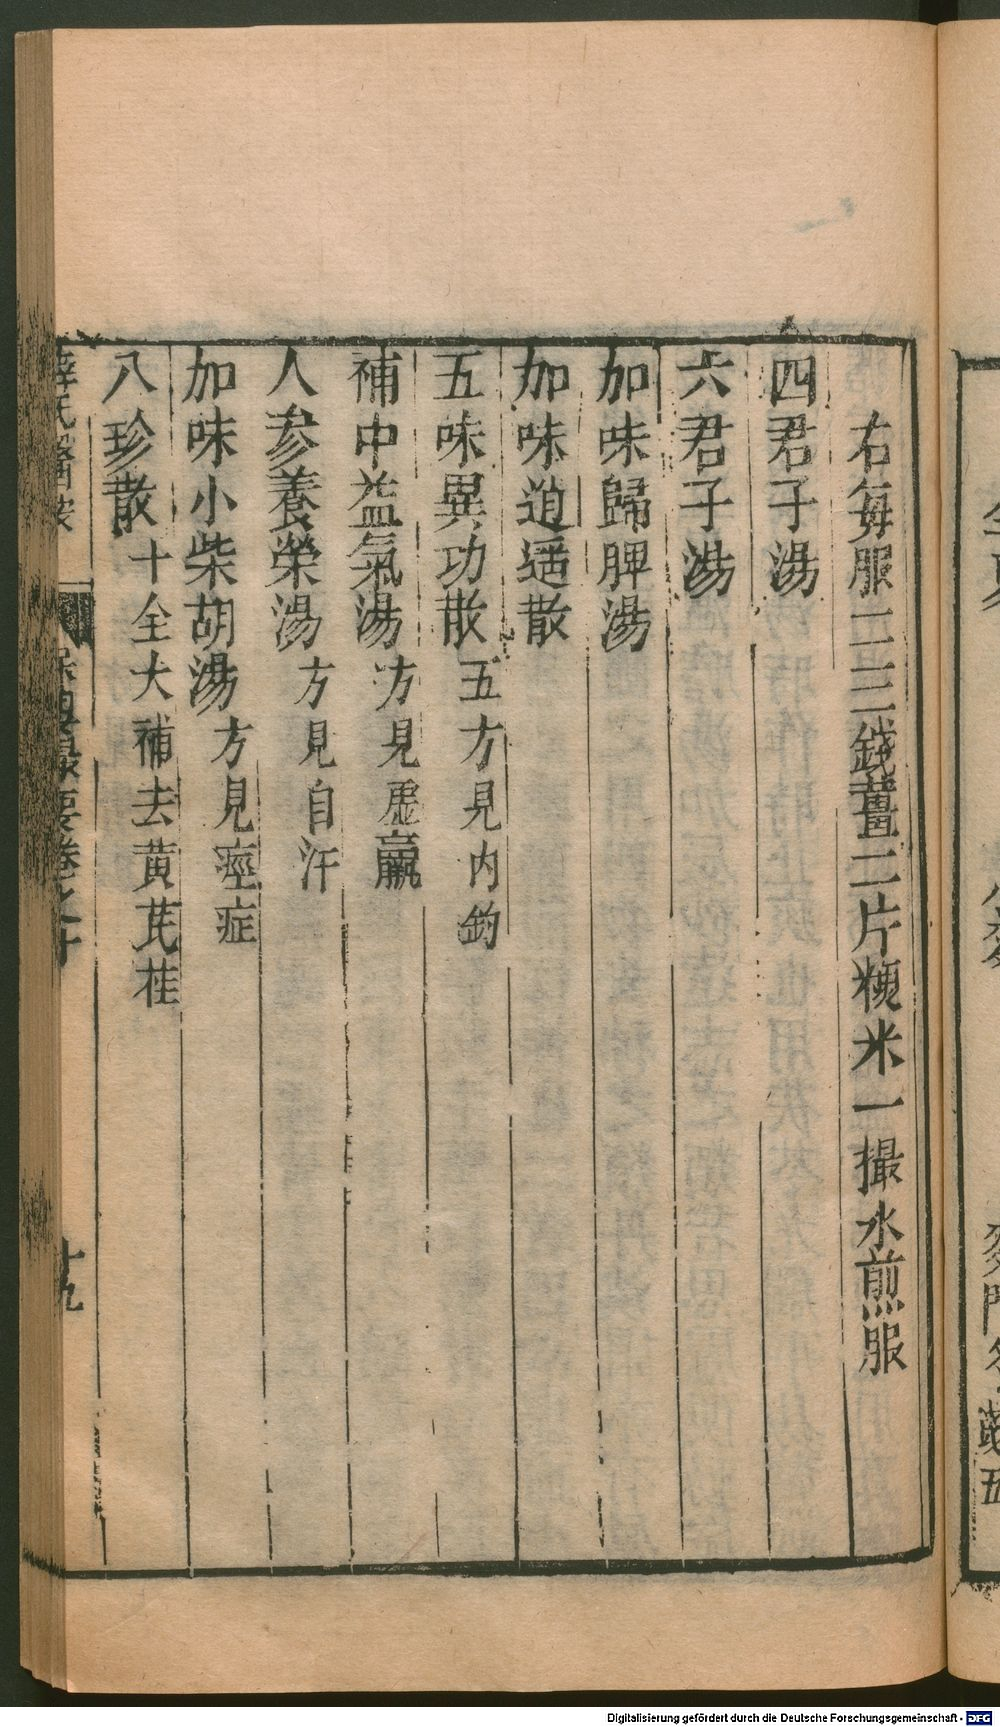 右每服二三錢薑二片粳米一撮水煎服
四君子湯
六君子湯
加味歸脾湯
加味逍遥散
五味異功散 五方見内釣
補中益氣湯 方見虛羸
人參養榮湯 方見自汗
加味小柴胡湯 方見痙症
八珍散 十全大補去黄芪桂
薛氏醫案 保嬰撮要卷之十 十九
Digitalisierung gefördert durch die Deutsche Forschungsgemeinschaft - DFG